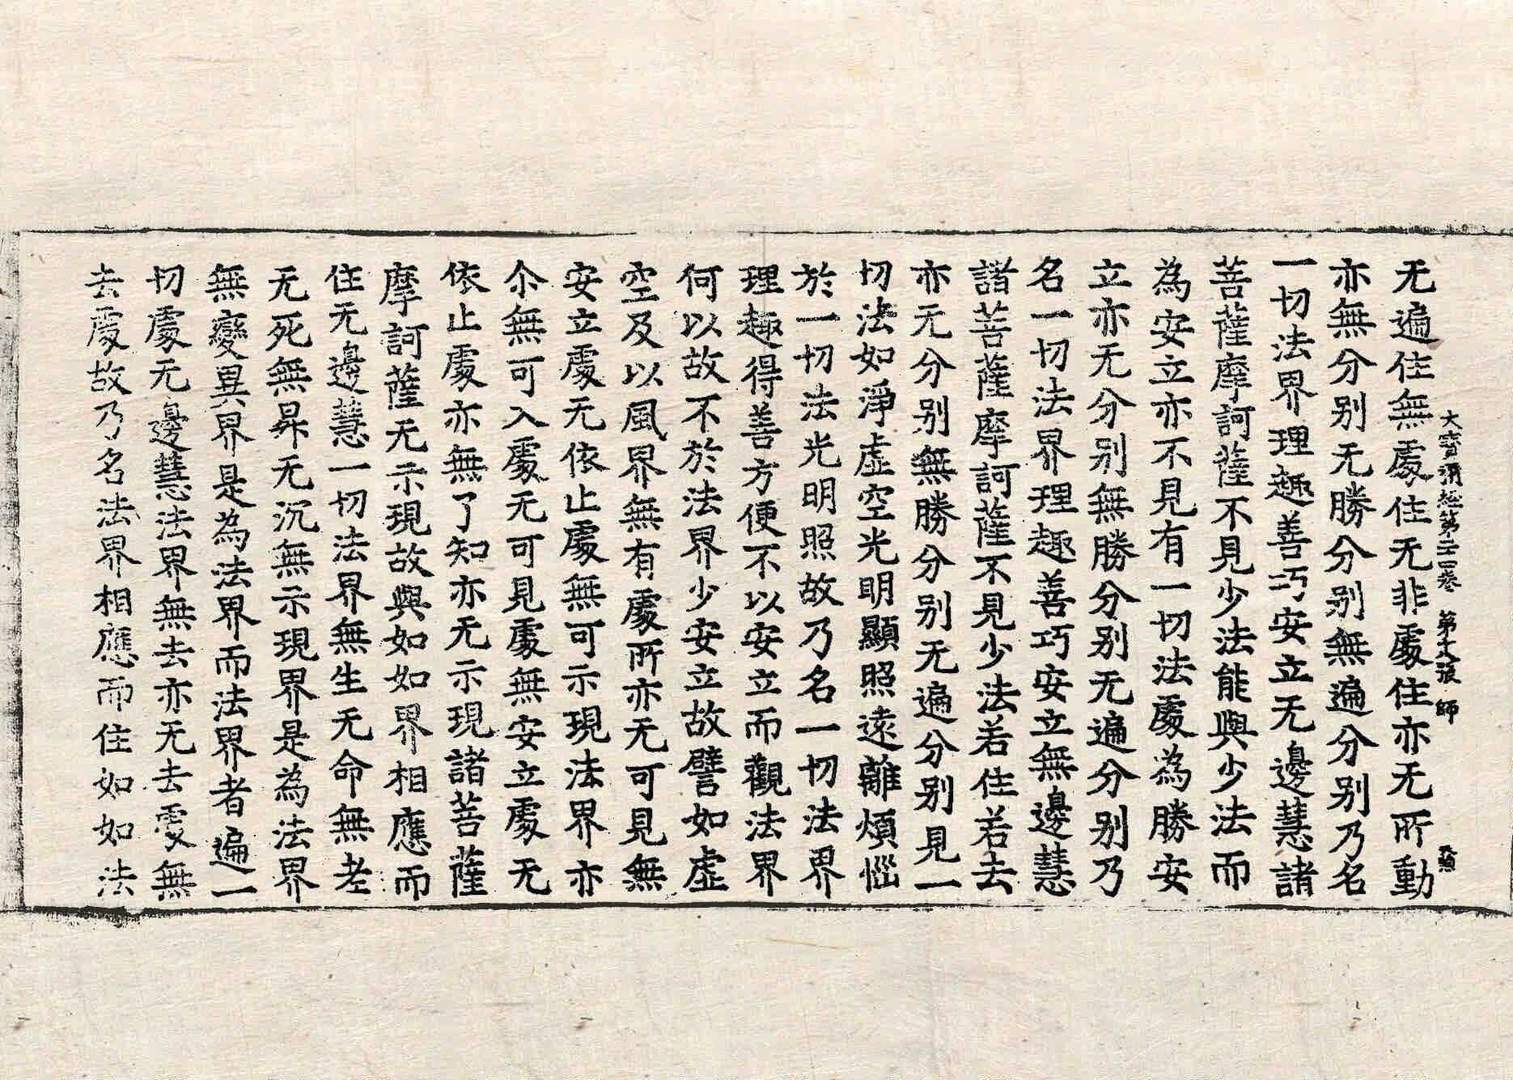 大寶積經第二十四卷 第十七張 師
无遍住無處住无非處住亦无所動
亦無分别无勝分别無遍分别乃名
一切法界理趣善巧安立无邊慧諸
菩薩摩訶薩不見少法能與少法而
為安立亦不見有一切法處為勝安
立亦无分别無勝分别无遍分别乃
名一切法界理趣善巧安立無邊慧
諸菩薩摩訶薩不見少法若住若去
亦无分别無勝分别无遍分别見一
切法如淨虛空光明顯照遠離煩惱
於一切法光明照故乃名一切法界
理趣得善方便不以安立而觀法界
何以故不於法界少安立故譬如虛
空及以風界無有處所亦无可見無
安立處无依止處無可示現法界亦
尒無可入處无可見處無安立處无
依止處亦無了知亦无示現諸菩薩
摩訶薩无示現故與如如界相應而
住无邊慧一切法界無生无命無老
无死無昇无沉無示現界是為法界
無變異界是為法界而法界者遍一
切處无邊慧法界無去亦无去處無
去處故乃名法界相應而住如如法